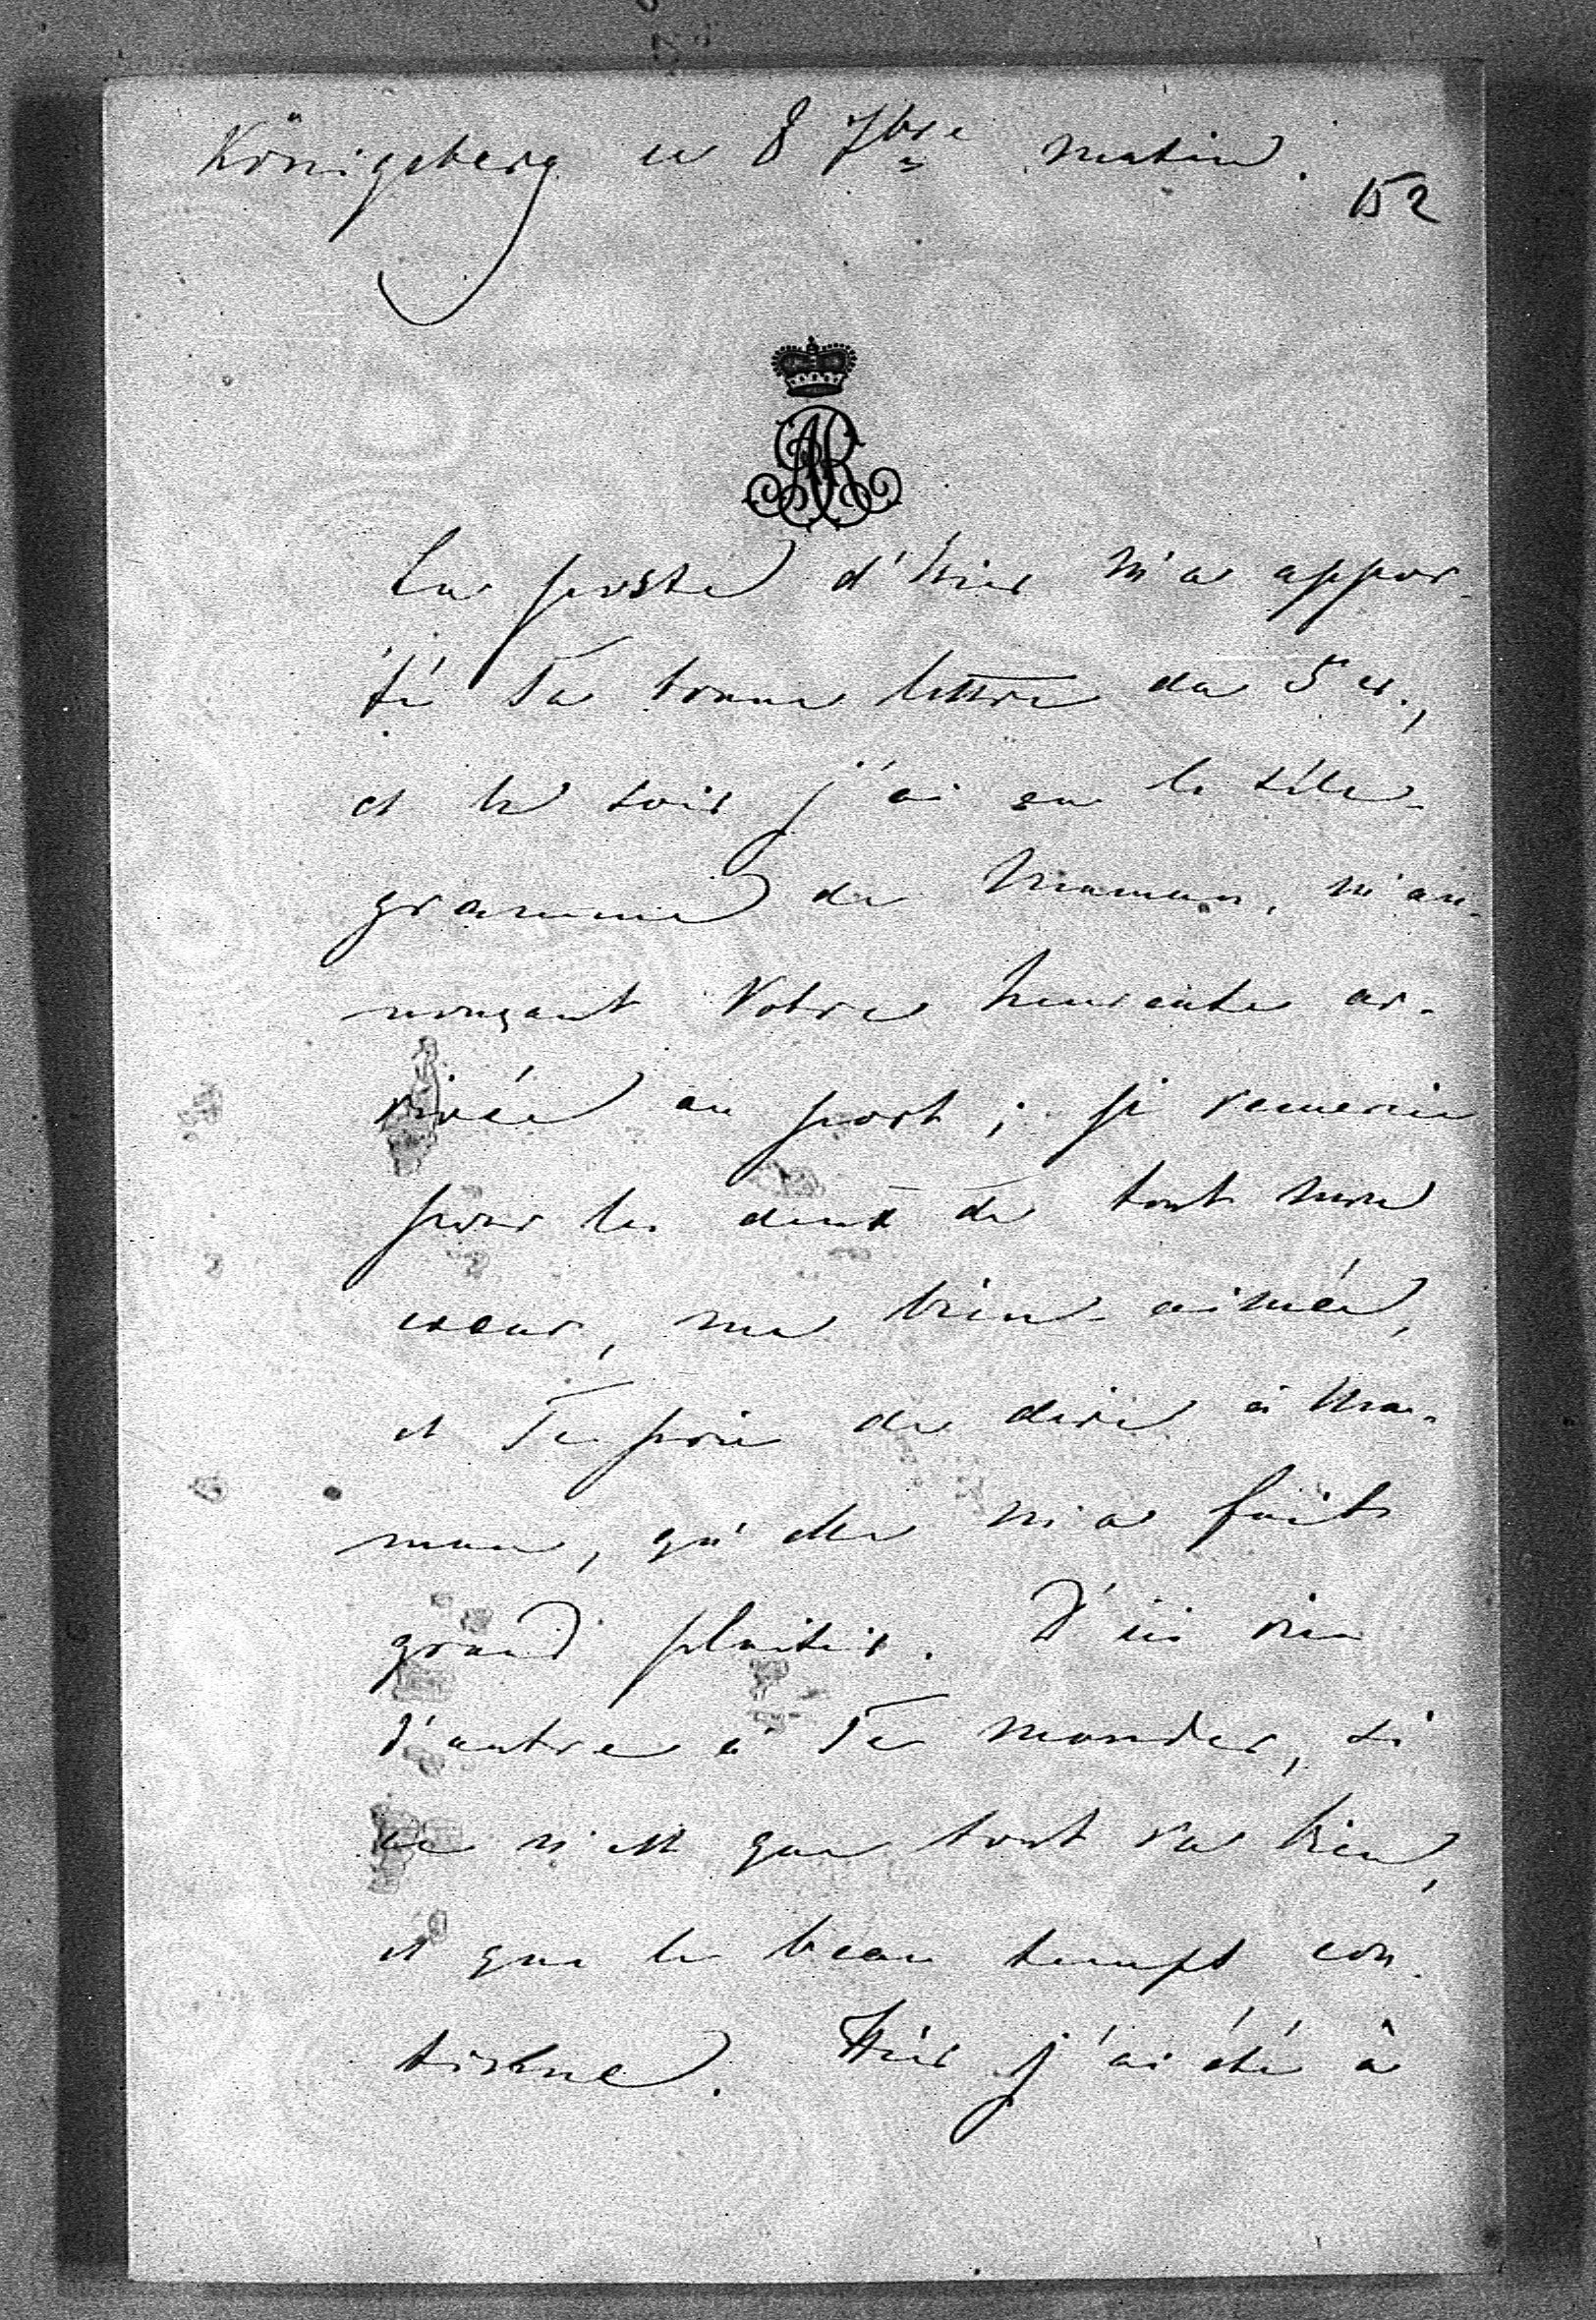 Königsberg ce 8 7bre matin.
152
AR
La poste d'hier m'a appor-
té Ta bonne lettre du 5 ct.,
et le soir j'ai eu le télé-
gramme de Maman, m'an-
nonçant Votre heureuse ar-
rivée au port; je remercie
pour les deux de tout mon
coeur, ma bien-aimée,
et Te prie de dire à Ma-
man, qu'elle m'a fait
grand plaisir. D'ici rien
d'autre à Te mander, si
ce n'est que tout va bien,
et que le beau temps con
tinue. Hier j'ai été à